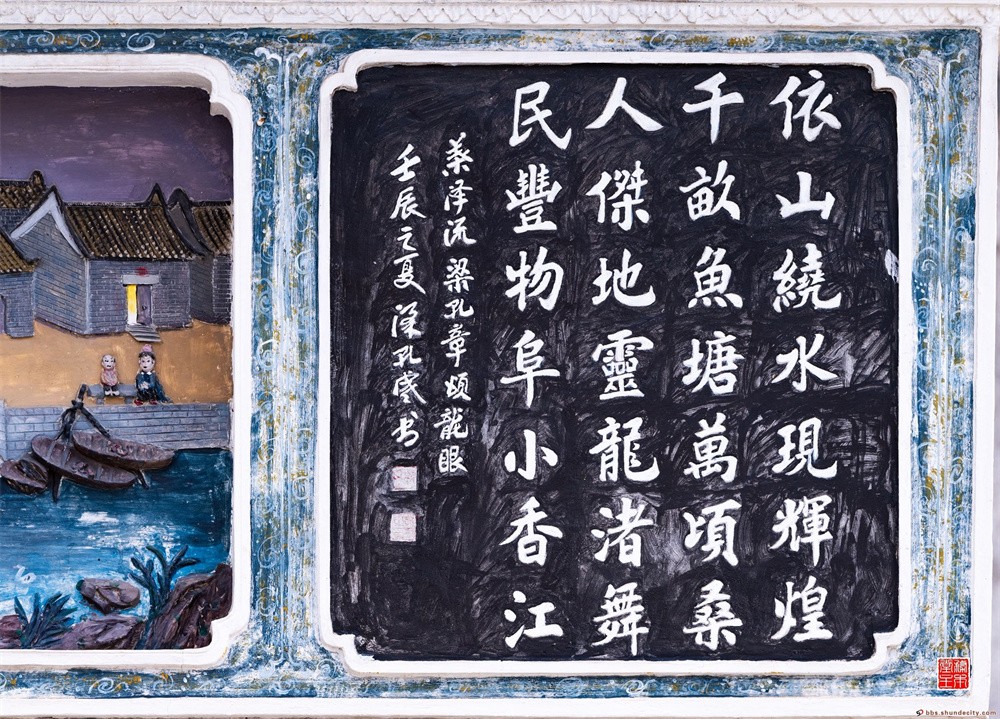 依山繞水現輝煌
千畝魚塘萬頃桑
人傑地靈龍渚舞
民豐物阜小香江
葉泽流梁孔章頌龍眼
壬辰之夏梁孔盛书
bbs.shundecity.com